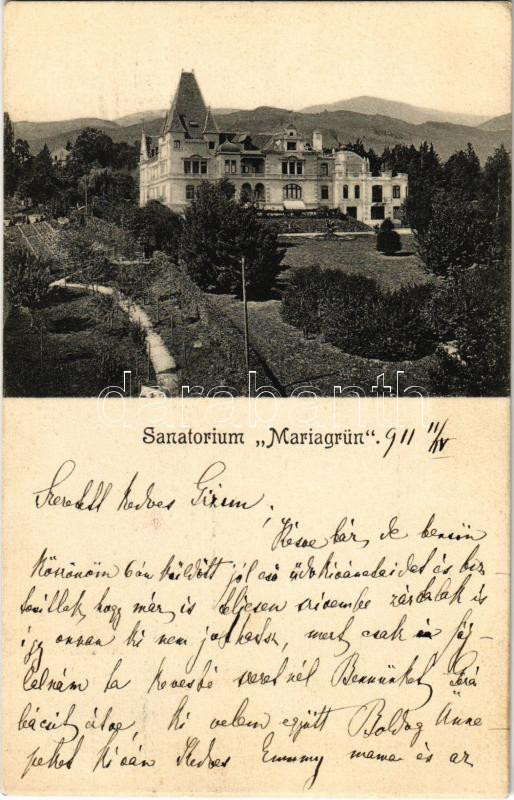 darabanth
Sanatorium „Mariagrün“. 911 11/IV
Szeretett kedves Gizum!
Késve bár, de bensőn
Köszönöm 6án küldött jól eső üdvkivánataidat és biz-
tosillak, hogy már is teljesen szivembe zártalak és
így onnan ki nem juthatsz, mert csak fáj-
lalnám ha kevesbé szeretnél Bennünket
bácsit velem együtt Boldog Ünne-
peket kíván Kedves Emmy mama és az